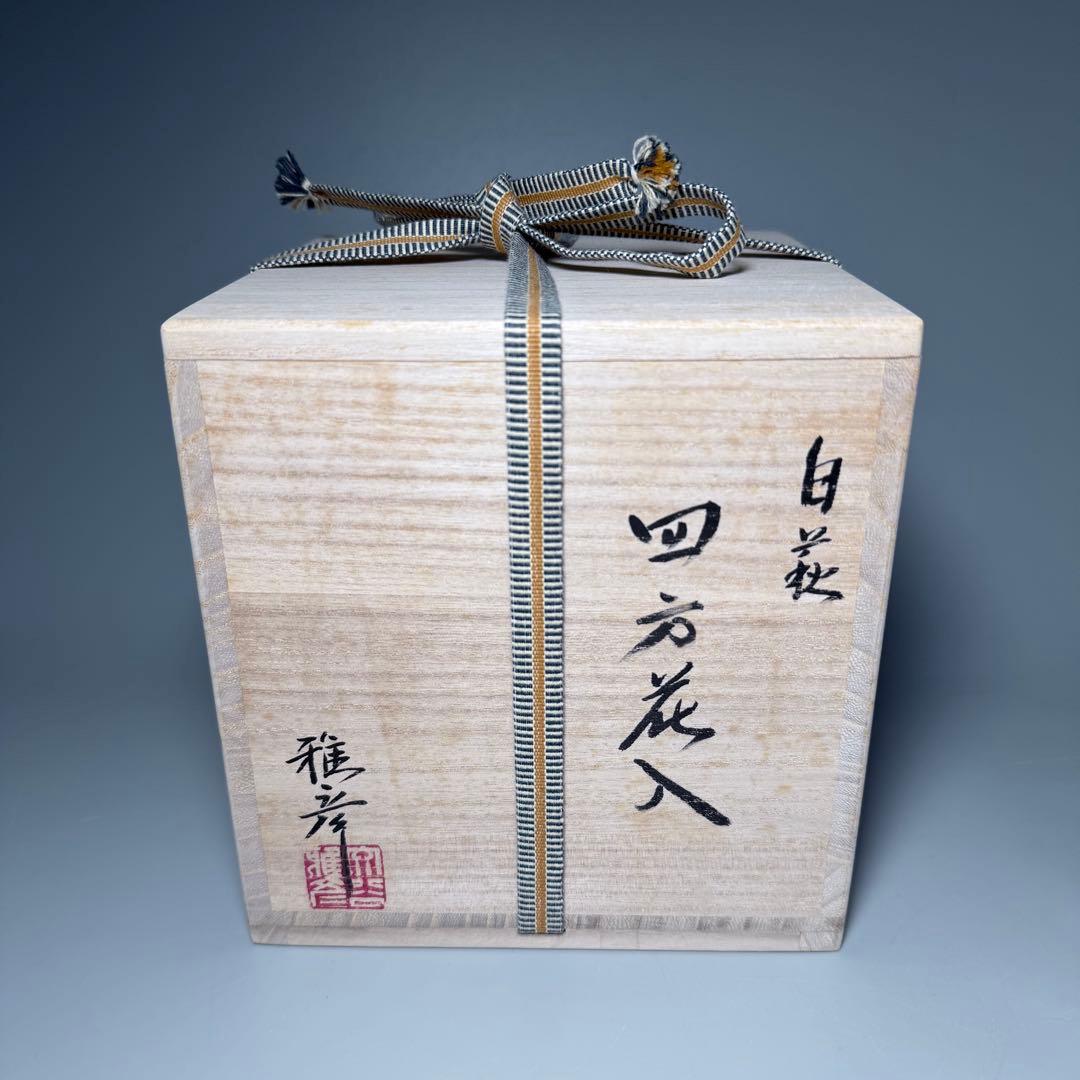 白萩
四方花入
雅彦